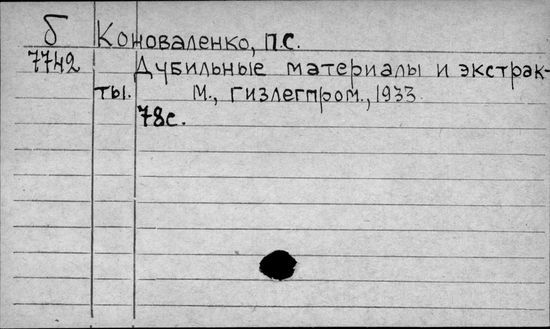 Б Коноваленко, П.С.
7742 Дубильные материалы и экстрак-
ты. М., гизлегпром., 1933.
78с.